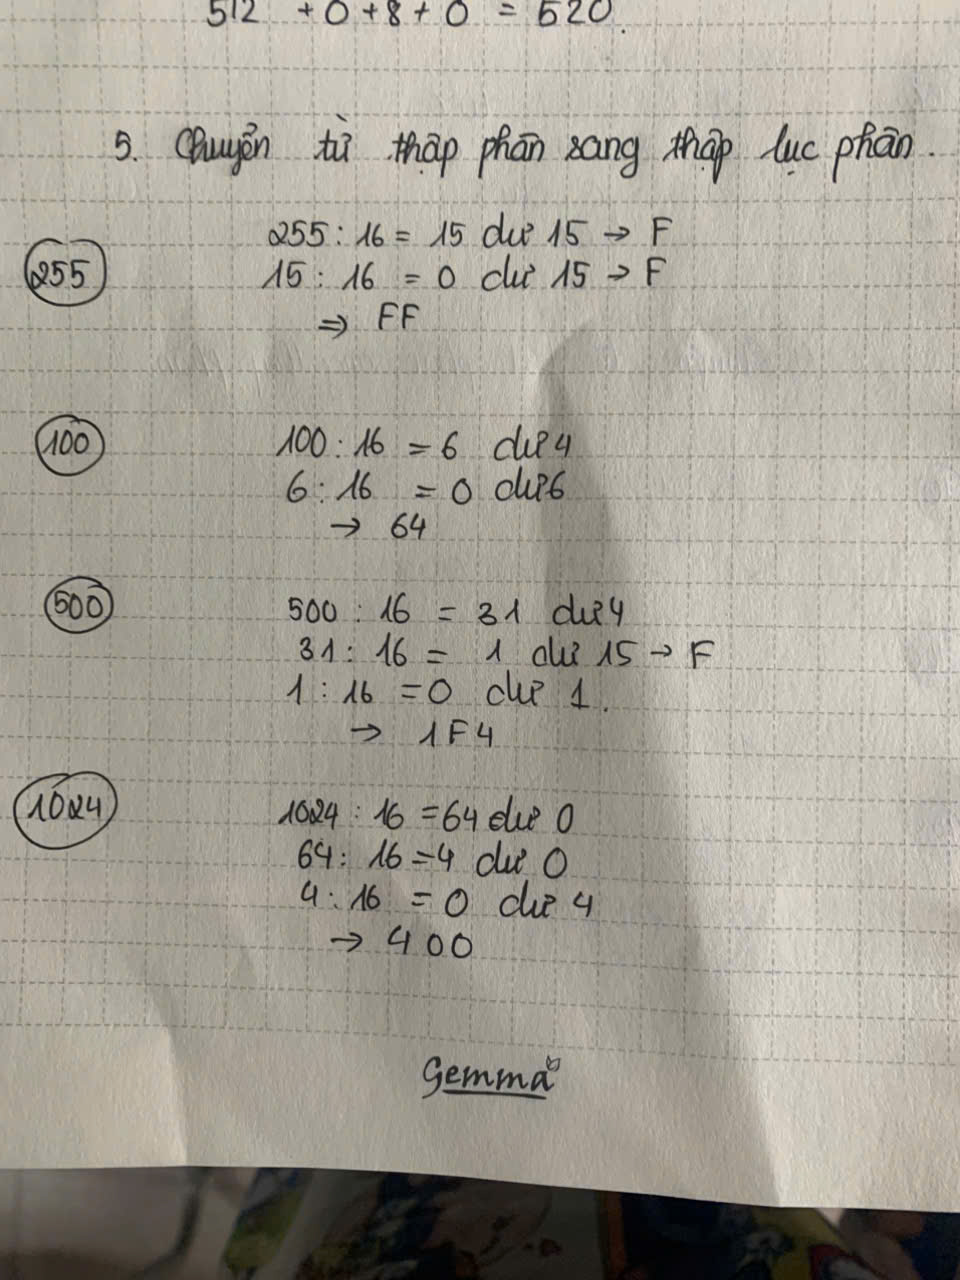 512 + 0 + 8 + 0 = 520.
5. Chuyển từ thập phân sang thập lục phân.
255
255 : 16 = 15 dư 15 → F
15 : 16 = 0 dư 15 → F
⇒ FF
100
100 : 16 = 6 dư 4
6 : 16 = 0 dư 6
→ 64
500
500 : 16 = 31 dư 4
31 : 16 = 1 dư 15 → F
1 : 16 = 0 dư 1.
→ 1F4
1024
1024 : 16 = 64 dư 0
64 : 16 = 4 dư 0
4 : 16 = 0 dư 4
→ 400
Gemma